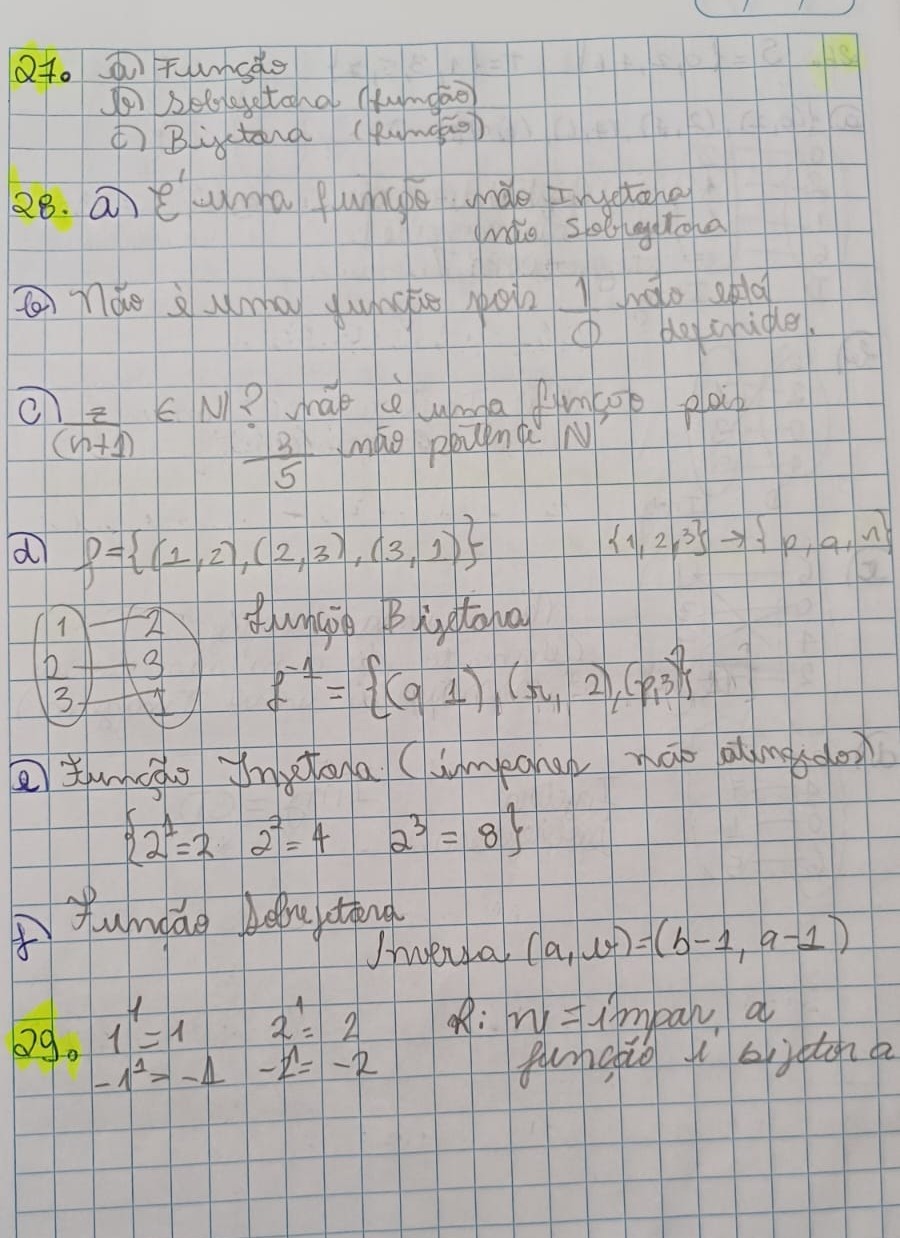 27. a) Função
b) Sobrejetora (função)
c) Bijetora (função)
28. a) É uma função não Injetora
não Sobrejetora
b) Não é uma função pois 1/0 não está
definido.
c) z/(n+1) ∈ N? não é uma função pois
3/5 não pertence N
d) f={(1,2),(2,3),(3,1)} {1,2,3}→{p,q,r}
1 2 função Bijetora
2 3 f⁻¹ = {(q 1), (r, 2), (p,3)}
3 1
e) Função Injetora (impares não atingidos)
{2¹=2 2²=4 2³=8}
f) Função Sobrejetora
Inversa (a,b)=(b-1, a-1)
29. 1¹=1 2¹= 2 R: n=ímpar, a
-1¹= -1 -2¹= -2 função é bijetora